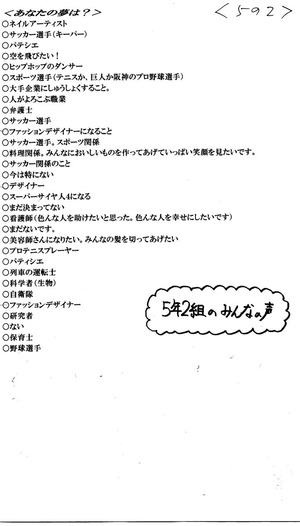 ＜あなたの夢は？＞
＜５の２＞
○ネイルアーティスト
○サッカー選手（キーパー）
○パテシエ
○空を飛びたい！
○ヒップホップのダンサー
○スポーツ選手（テニスか、巨人か阪神のプロ野球選手）
○大手企業にしゅうしょくすること。
○人がよろこぶ職業
○弁護士
○サッカー選手
○ファッションデザイナーになること
○サッカー選手。スポーツ関係
○料理関係。みんなにおいしいものを作ってあげていっぱい笑顔を見たいです。
○サッカー関係のこと
○今は特にない
○デザイナー
○スーパーサイヤ人4になる
○まだ決まってない
○看護師（色んな人を助けたいと思った。色んな人を幸せにしたいです）
○まだないです。
○美容師さんになりたい。みんなの髪を切ってあげたい
○プロテニスプレーヤー
○パティシエ
○列車の運転士
○科学者（生物）
○自衛隊
○ファッションデザイナー
○研究者
○ない
○保育士
○野球選手
5年2組のみんなの声